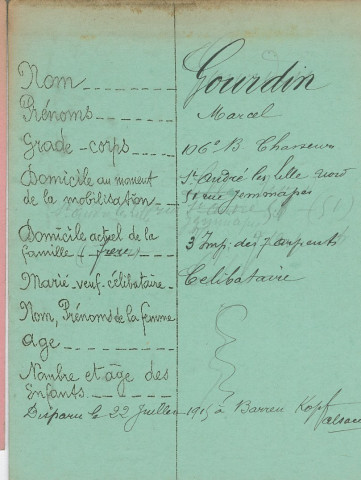 Nom Gourdin
Prénoms Marcel
Grade-corps 106e B Chasseurs
Domicile au moment St André lez lille nord
de la mobilisation rue Jemmapes
Domicile actuel de la 3 Imp. des 7 arpents
famille (frère)
Marié-veuf-célibataire Célibataire
Nom, Prénoms de la femme
age
Nombre et âge des
Enfants
Disparu le 22 Juillet 1915 à Barren Kopf
alsace